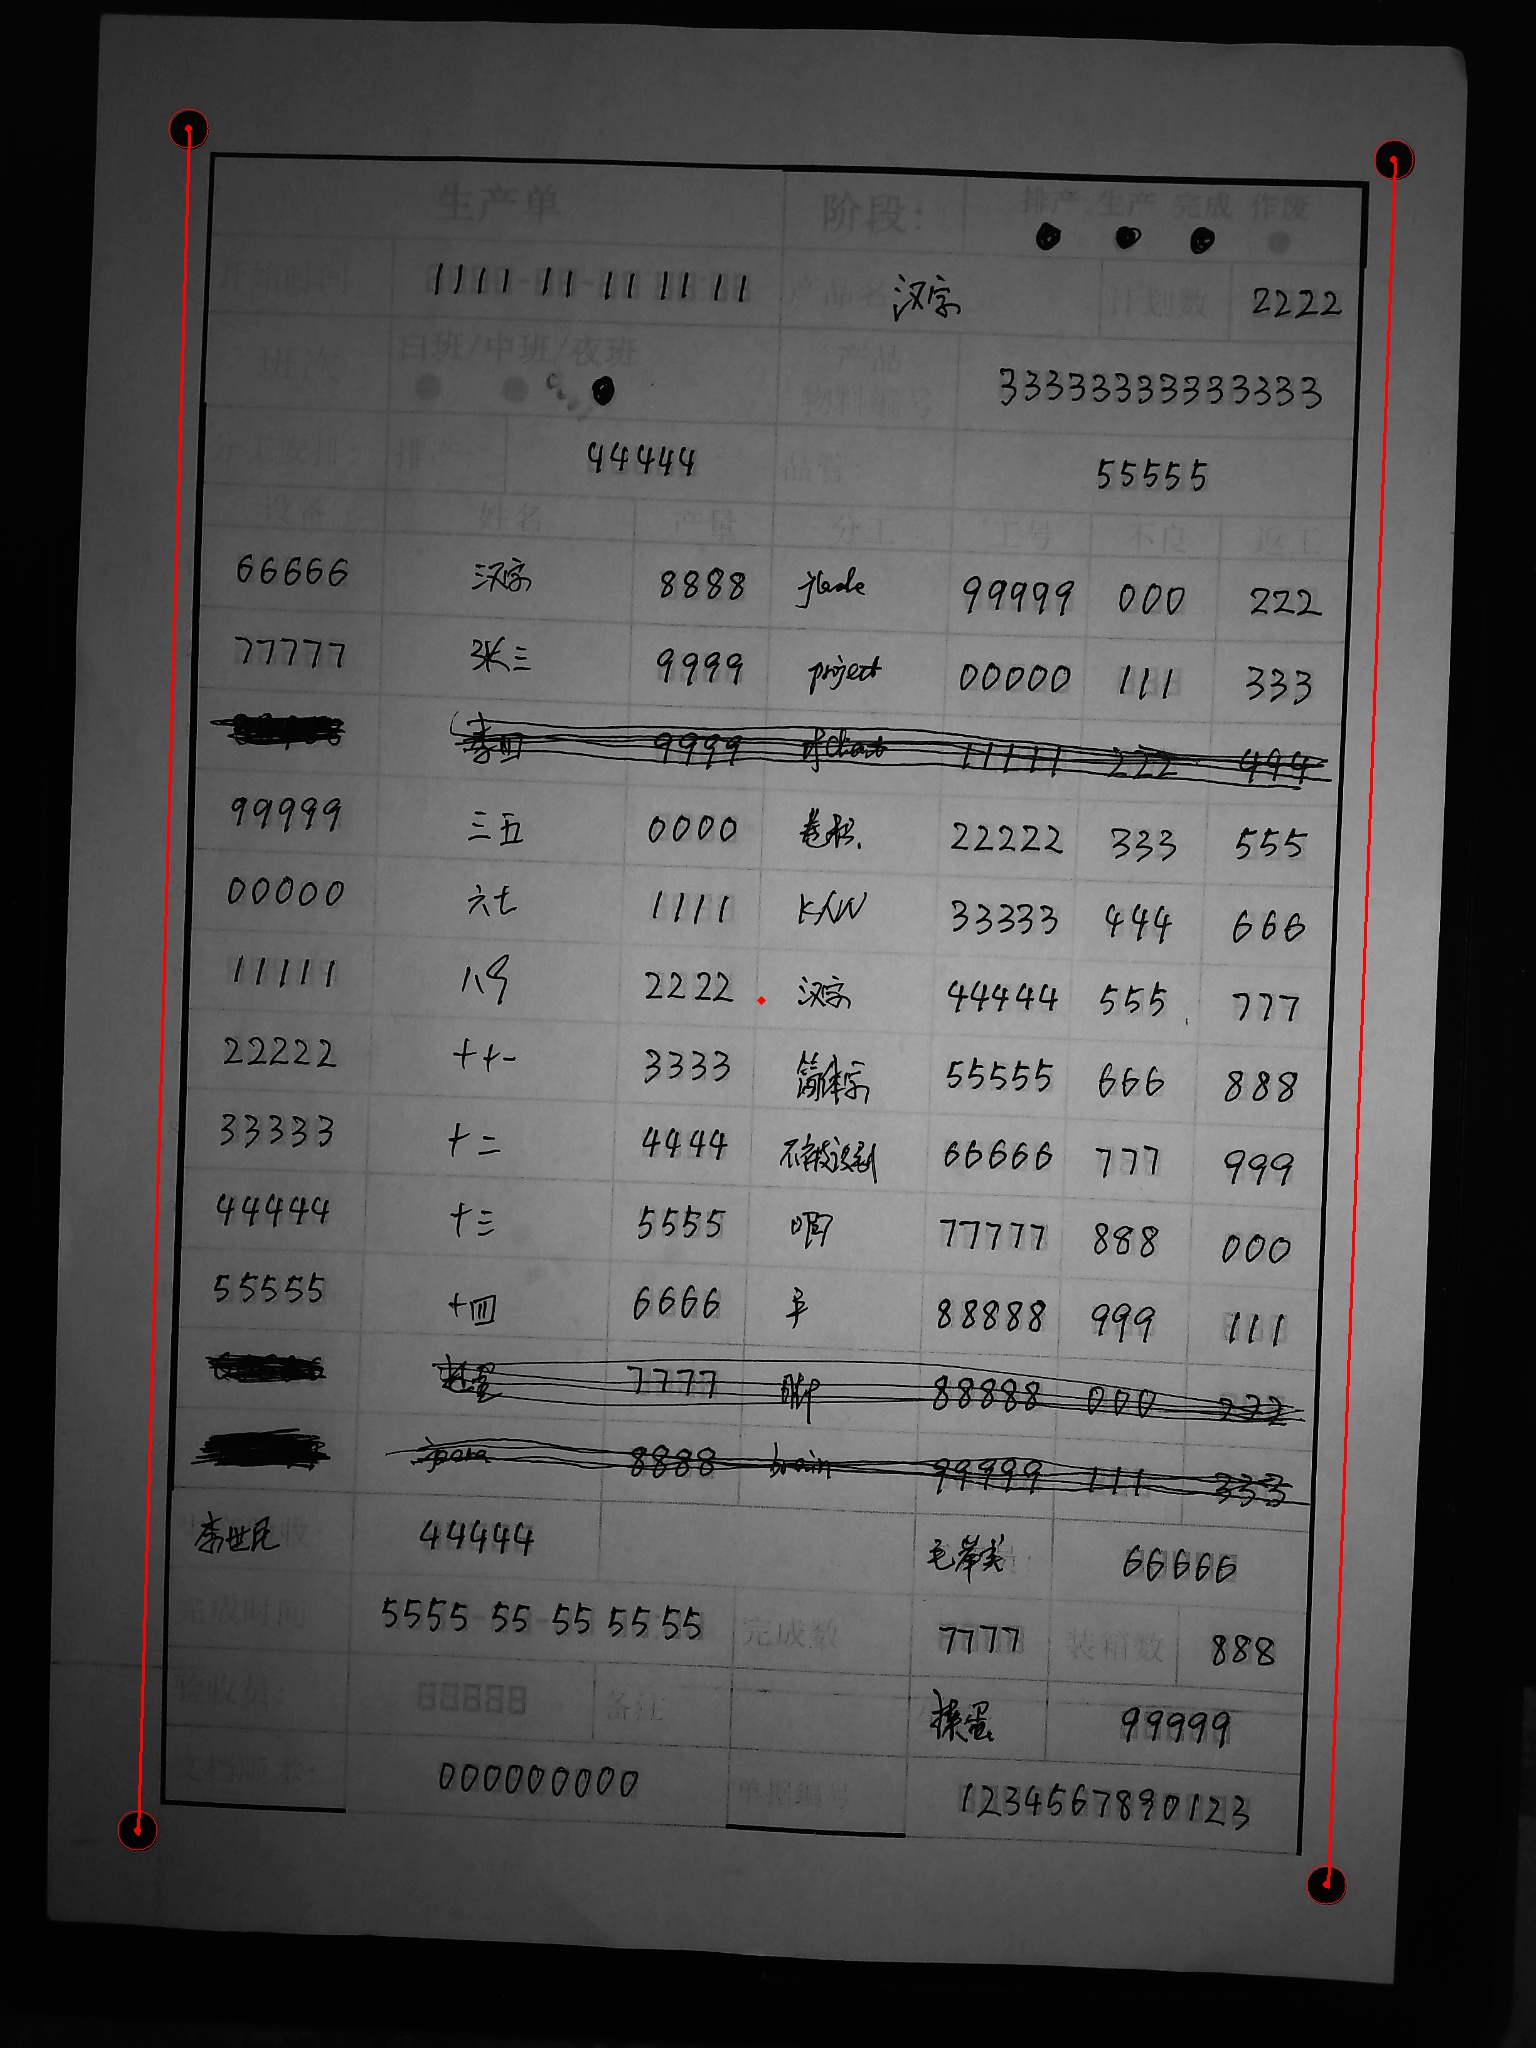 生产单 阶段: 排产 生产 完成 作废
开始时间 1111-11-11 11 11 产品名 汉字 计划数 2222
班次 白班/中班/夜班 产品物料编号 33333333333333
分工安排: 排产: 44444 品管: 55555
设备 姓名 产量 分工 工号 不良 返工
66666 汉字 8888 99999 000 222
77777 张三 9999 project 00000 111 333
李四 9999 11111 222 444
99999 三五 0000 卷积. 22222 333 555
00000 六七 1111 33333 444 666
11111 八九 2222 汉字 44444 555 777
22222 十十一 3333 简体字 55555 666 888
33333 十二 4444 不被识别 66666 777 999
44444 十三 5555 77777 888 000
55555 十四 6666 手 88888 999 111
7777 脚 88888 000 222
8888 brain 99999 111 333
李世民 44444 66666
完成时间 5555 55-55 55 55 完成数 7777 装箱数 888
验收员: 88888 备注 99999
文档版本: 000000000 单据编号 1234567890123